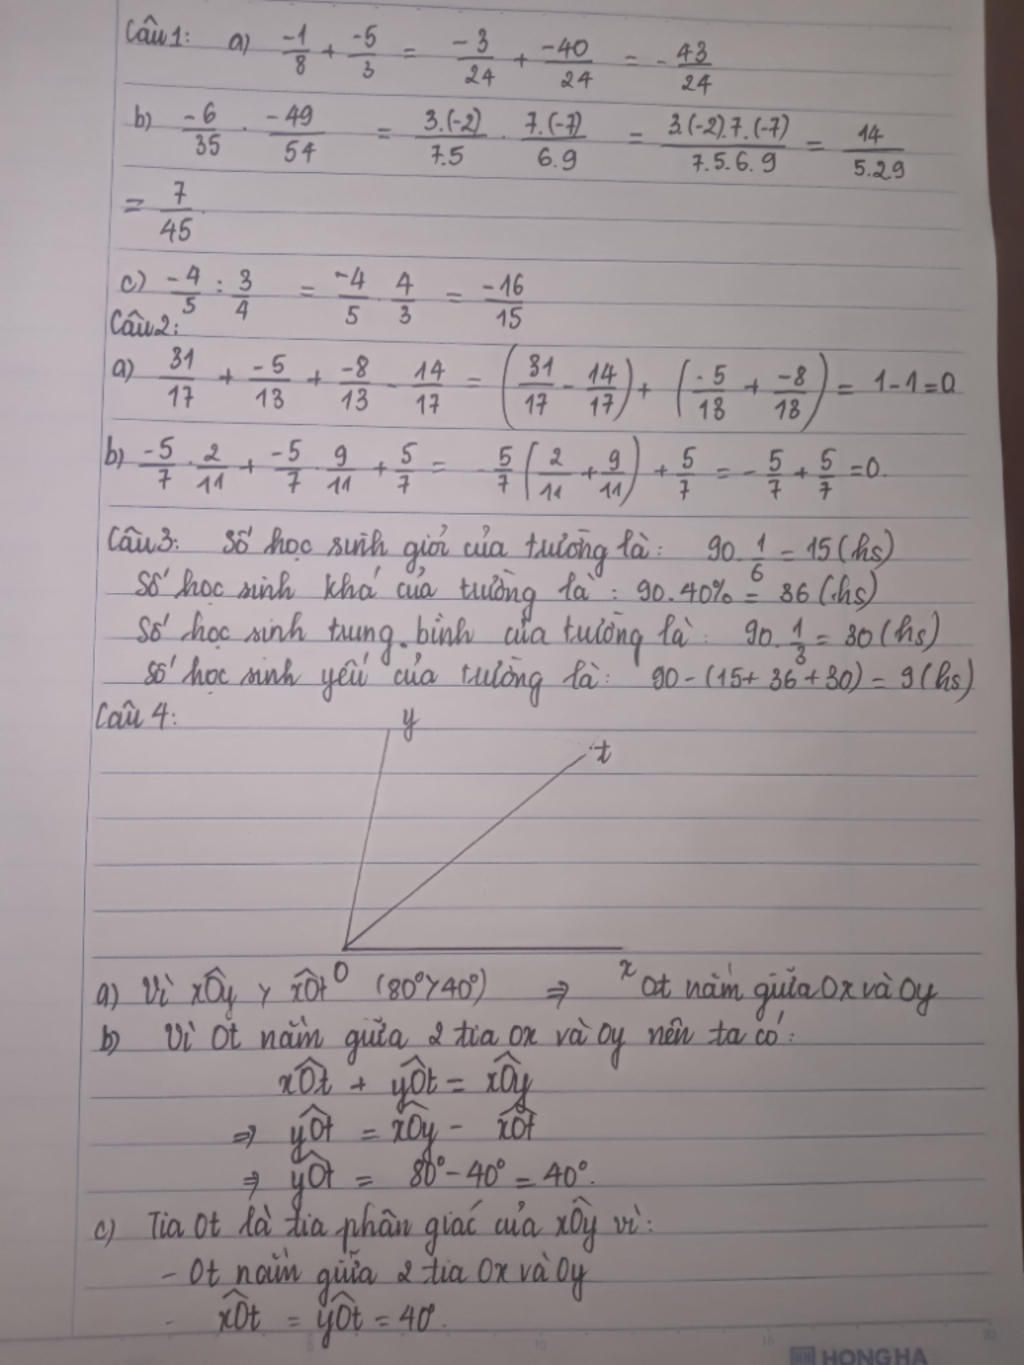 Câu 1: a) -1/8 + -5/3 = -3/24 + -40/24 = - 43/24
b) -6/35 . -49/54 = 3.(-2)/7.5 . 7.(-7)/6.9 = 3.(-2).7.(-7)/7.5.6.9 = 14/5.2.9
= 7/45
c) -4/5 : 3/4 = -4/5 . 4/3 = -16/15
Câu 2:
a) 31/17 + -5/13 + -8/13 - 14/17 = (31/17 - 14/17) + (-5/13 + -8/13) = 1-1=0
b) -5/7 . 2/11 + -5/7 . 9/11 + 5/7 = - 5/7 (2/11 + 9/11) + 5/7 = - 5/7 + 5/7 = 0.
Câu 3: Số học sinh giỏi của trường là: 90. 1/6 = 15 (hs)
Số học sinh khá của trường là: 90.40% = 36 (hs)
Số học sinh trung bình của trường là: 90. 1/3 = 30 (hs)
Số học sinh yếu của trường là: 90 - (15+ 36 +30) = 9 (hs)
Câu 4:
y
t
O
x
a) Vì xÔy > xÔt (80°>40°) => Ot nằm giữa Ox và Oy
b) Vì Ot nằm giữa 2 tia Ox và Oy nên ta có:
xÔt + yÔt = xÔy
=> yÔt = xÔy - xÔt
=> yÔt = 80° - 40° = 40°.
c) Tia Ot là tia phân giác của xÔy vì:
- Ot nằm giữa 2 tia Ox và Oy
- xÔt = yÔt = 40°.
5 10 15 20
HONG HA